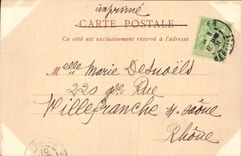 imprimé
CARTE POSTALE
Ce côté est exclusivement réservé à l'adresse
Melle Marie Desnoëls
220 gde Rue
Villefranche s/ saône
Rhône